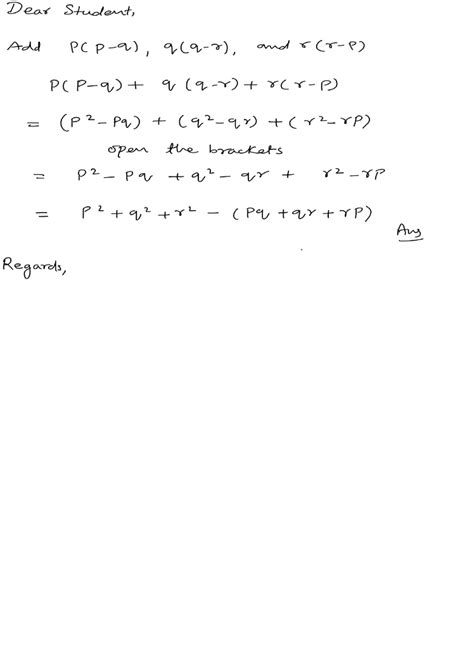 Dear Student,
Add P(P-q), q(q-r), and r(r-P)
P(P-q) + q(q-r) + r(r-P)
= (P²-Pq) + (q²-qr) + (r²-rP)
open the brackets
= P² - Pq + q² - qr + r² - rP
= P² + q² + r² - (Pq + qr + rP)
Ans
Regards,